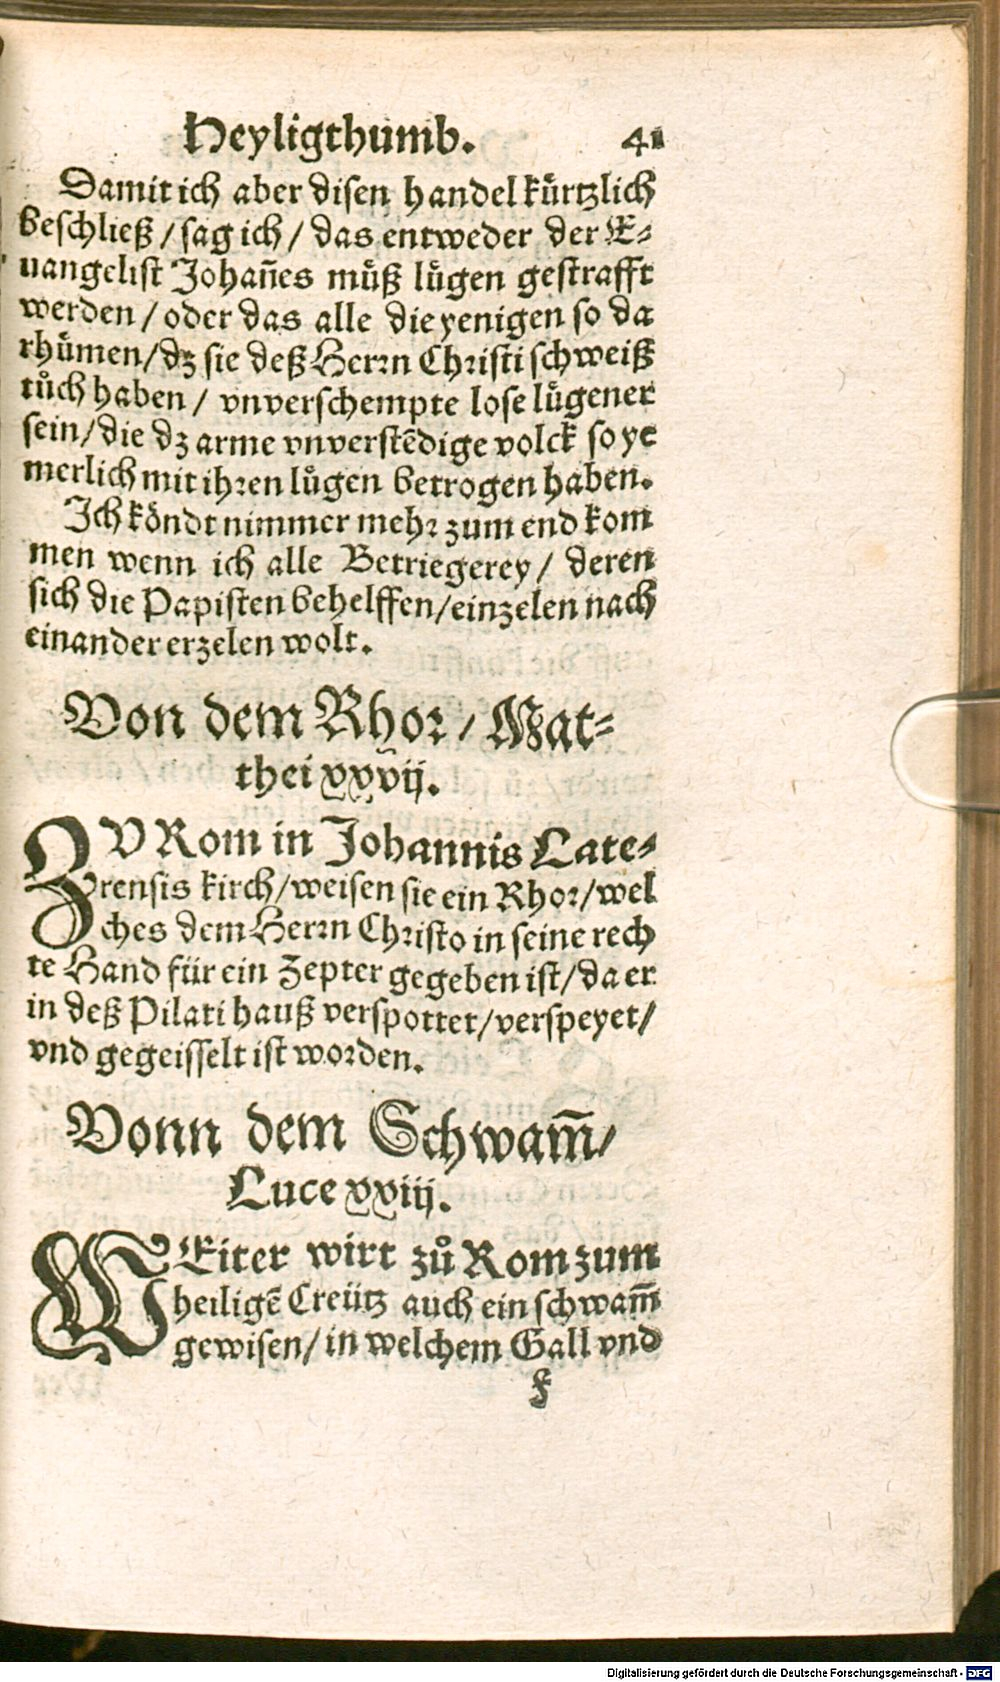 Heyligthumb. 41
Damit ich aber disen handel kürtzlich
beschließ / sag ich / das entweder der E⸗
uangelist Johañes müß lügen gestrafft
werden / oder das alle die yenigen so da
rhümen / dz sie deß Herrn Christi schweiß
tůch haben / vnverschempte lose lügener
sein / die dz arme vnverstẽdige volck so ye
merlich mit ihren lügen betrogen haben.
Ich köndt nimmer mehr zum end kom
men wenn ich alle Betriegerey / deren
sich die Papisten behelffen / einzelen nach
einander erzelen wolt.
Von dem Rhor / Mat⸗
thei xxvij.
ZV Rom in Johannis Late⸗
rensis kirch / weisen sie ein Rhor / wel
ches dem Herrn Christo in seine rech
te Hand für ein Zepter gegeben ist / da er
in deß Pilati hauß verspottet / verspeyet /
vnd gegeisselt ist worden.
Vonn dem Schwam̃ /
Luce xxiij.
WEiter wirt zů Rom zum
heiligẽ Creütz auch ein schwam̃
gewisen / in welchem Gall vnd
f
Digitalisierung gefördert durch die Deutsche Forschungsgemeinschaft - DFG